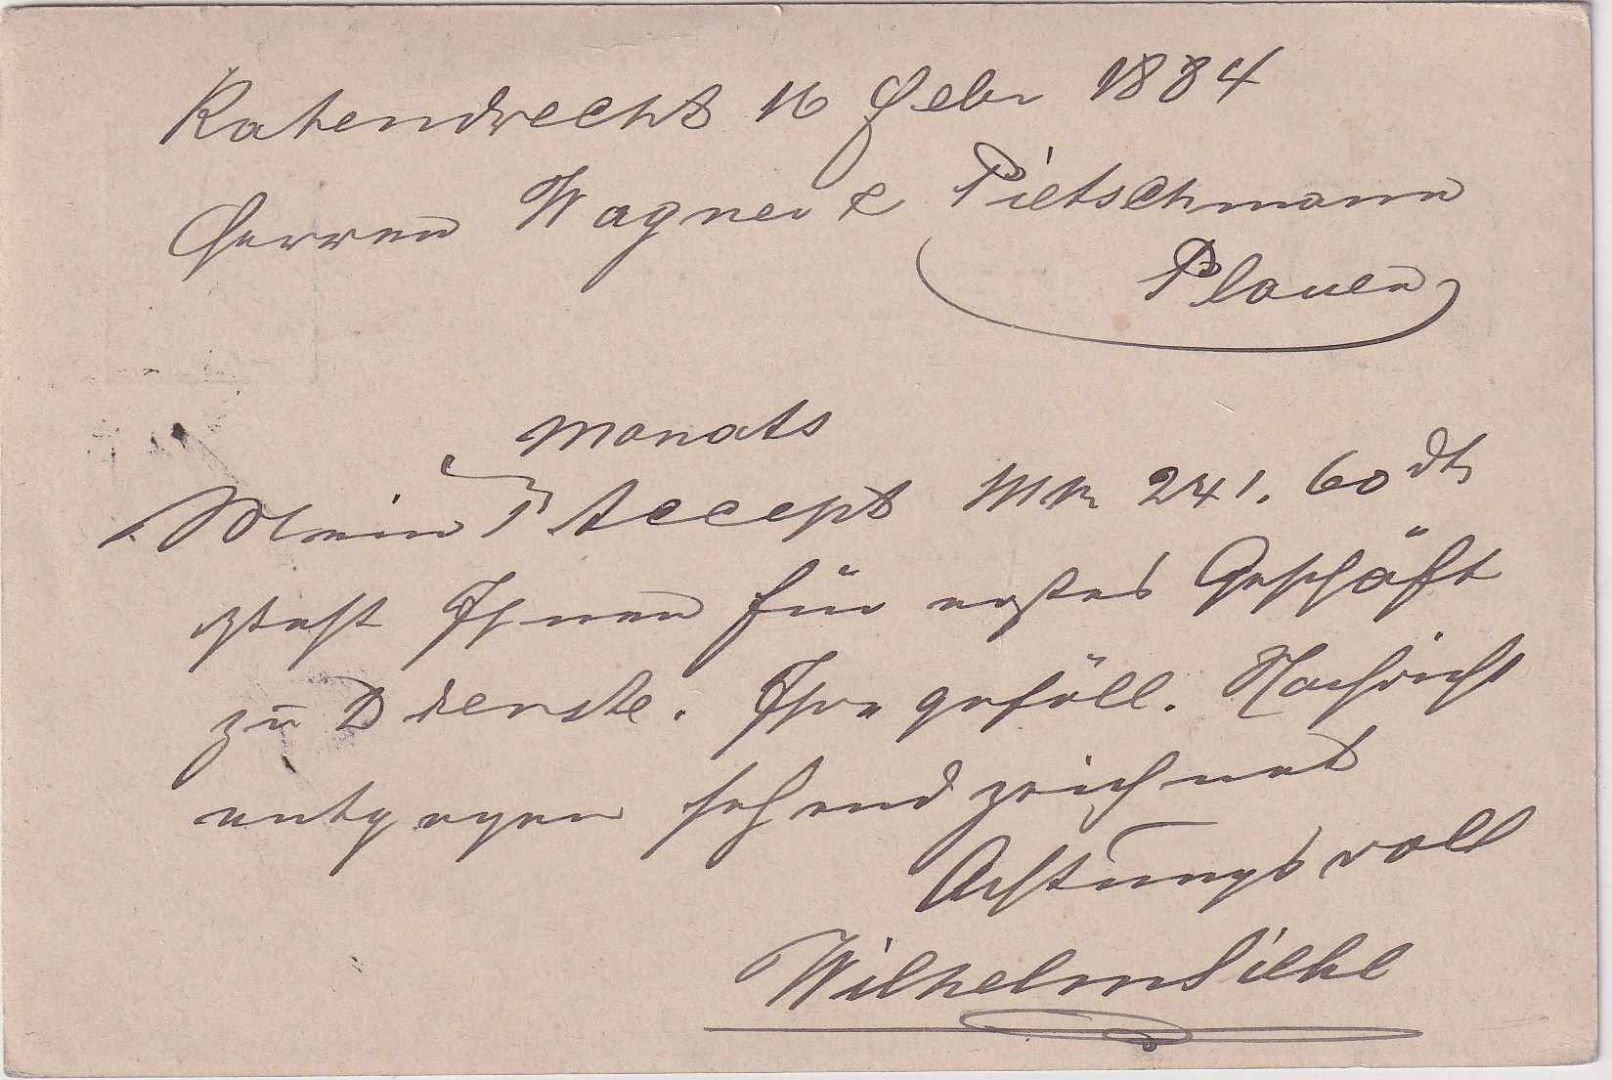 Katendrecht 16 Febr 1884
Herren Wagner & Pietschmann
Plauen
monats
Mein 3 Accept Mk 241. 60 dts
steht Ihnen für erstes Geschäft
zu Dienste. Ihre gefäll. Nachricht
entgegen sehend zeichnet
Achtungsvoll
Wilhelm